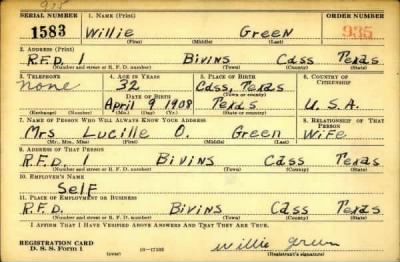 935
SERIAL NUMBER 1. NAME (Print) ORDER NUMBER
1583 Willie Green 935
(First) (Middle) (Last)
2. ADDRESS (Print)
R.F.D. 1 Bivins Cass Texas
(Number and street or R. F. D. number) (Town) (County) (State)
3. TELEPHONE 4. AGE IN YEARS 5. PLACE OF BIRTH 6. COUNTRY OF CITIZENSHIP
None 32 Cass, Texas
DATE OF BIRTH (Town or county)
April 9 1908 Texas U.S.A.
(Exchange) (Number) (Mo.) (Day) (Yr.) (State or country)
7. NAME OF PERSON WHO WILL ALWAYS KNOW YOUR ADDRESS 8. RELATIONSHIP OF THAT PERSON
Mrs Lucille O. Green Wife
(Mr., Mrs., Miss) (First) (Middle) (Last)
9. ADDRESS OF THAT PERSON
R.F.D. 1 Bivins Cass Texas
(Number and street or R. F. D. number) (Town) (County) (State)
10. EMPLOYER'S NAME
Self
11. PLACE OF EMPLOYMENT OR BUSINESS
R.F.D. Bivins Cass Texas
(Number and street or R. F. D. number) (Town) (County) (State)
I AFFIRM THAT I HAVE VERIFIED ABOVE ANSWERS AND THAT THEY ARE TRUE.
REGISTRATION CARD
D. S. S. Form 1 (over) Willie Green
(Registrant's signature)